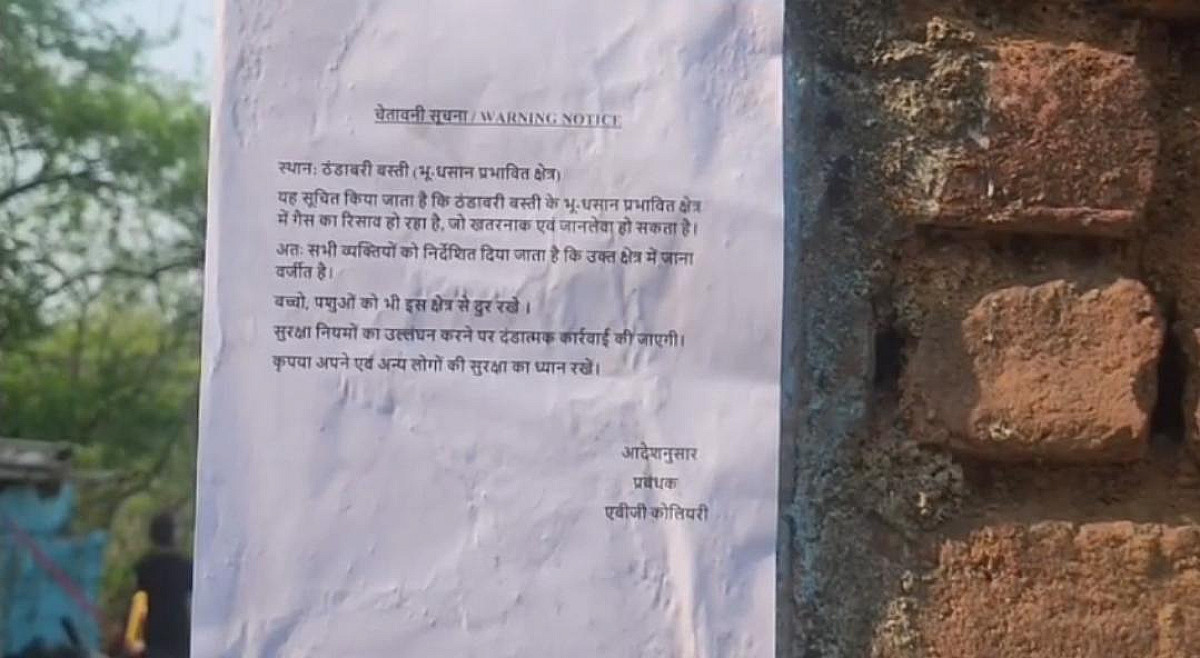 चेतावनी सूचना / WARNING NOTICE
स्थान: ठंडाबरी बस्ती (भू-धसान प्रभावित क्षेत्र)
यह सूचित किया जाता है कि ठंडाबरी बस्ती के भू-धसान प्रभावित क्षेत्र
में गैस का रिसाव हो रहा है, जो खतरनाक एवं जानलेवा हो सकता है।
अतः सभी व्यक्तियों को निर्देशित दिया जाता है कि उक्त क्षेत्र में जाना
वर्जीत है।
बच्चो, पशुओं को भी इस क्षेत्र से दुर रखे ।
सुरक्षा नियमों का उल्लंघन करने पर दंडात्मक कार्रवाई की जाएगी।
कृपया अपने एवं अन्य लोगों की सुरक्षा का ध्यान रखें।
आदेशनुसार
प्रबंधक
एबीजी कोलियरी